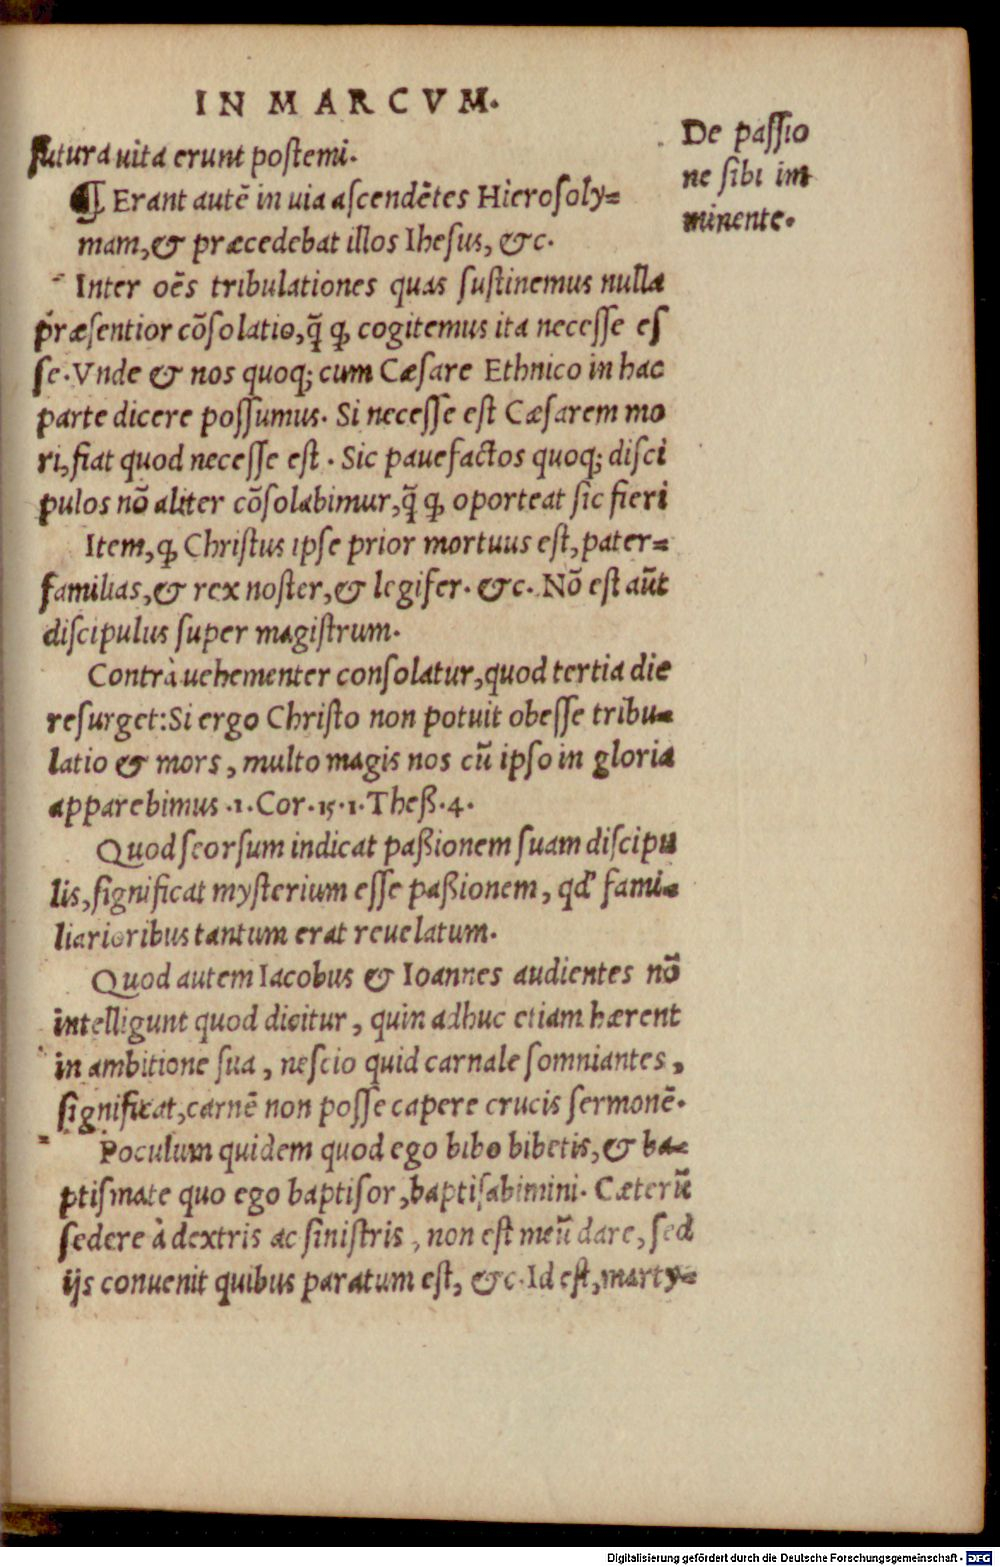 IN MARCVM.
futura uita erunt postremi.
¶ Erant autẽ in uia ascendẽtes Hierosoly=
mam, & præcedebat illos Ihesus, &c.
Inter oẽs tribulationes quas sustinemus nulla
præsentior cõsolatio, q̃ ꝙ cogitemus ita necesse es
se. Vnde & nos quoq; cum Cæsare Ethnico in hac
parte dicere possumus. Si necesse est Cæsarem mo
ri, fiat quod necesse est. Sic pauefactos quoq; disci
pulos nõ aliter cõsolabimur, q̃ ꝙ oporteat sic fieri
Item, ꝙ Christus ipse prior mortuus est, pater=
familias, & rex noster, & legifer. &c. Nõ est aũt
discipulus super magistrum.
Contrà uehementer consolatur, quod tertia die
resurget: Si ergo Christo non potuit obesse tribu=
latio & mors, multo magis nos cũ ipso in gloria
apparebimus .1. Cor. 15. 1. Theß. 4.
Quod seorsum indicat paßionem suam discipu
lis, significat mysterium esse paßionem, qd' fami=
liarioribus tantum erat reuelatum.
Quod autem Iacobus & Ioannes audientes nõ
intelligunt quod dicitur, quin adhuc etiam hærent
in ambitione sua, nescio quid carnale somniantes,
significat, carnẽ non posse capere crucis sermonẽ.
Poculum quidem quod ego bibo bibetis, & ba=
ptismate quo ego baptisor, baptisabimini. Cæterũ
sedere à dextris ac sinistris, non est meũ dare, sed
ijs conuenit quibus paratum est, &c. Id est, marty=
De passio
ne sibi im
minente.
Digitalisierung gefördert durch die Deutsche Forschungsgemeinschaft - DFG